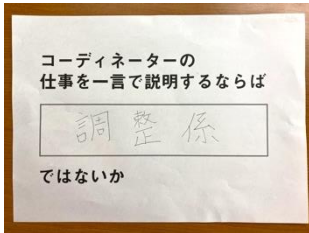 コーディネーターの
仕事を一言で説明するならば
調整係
ではないか